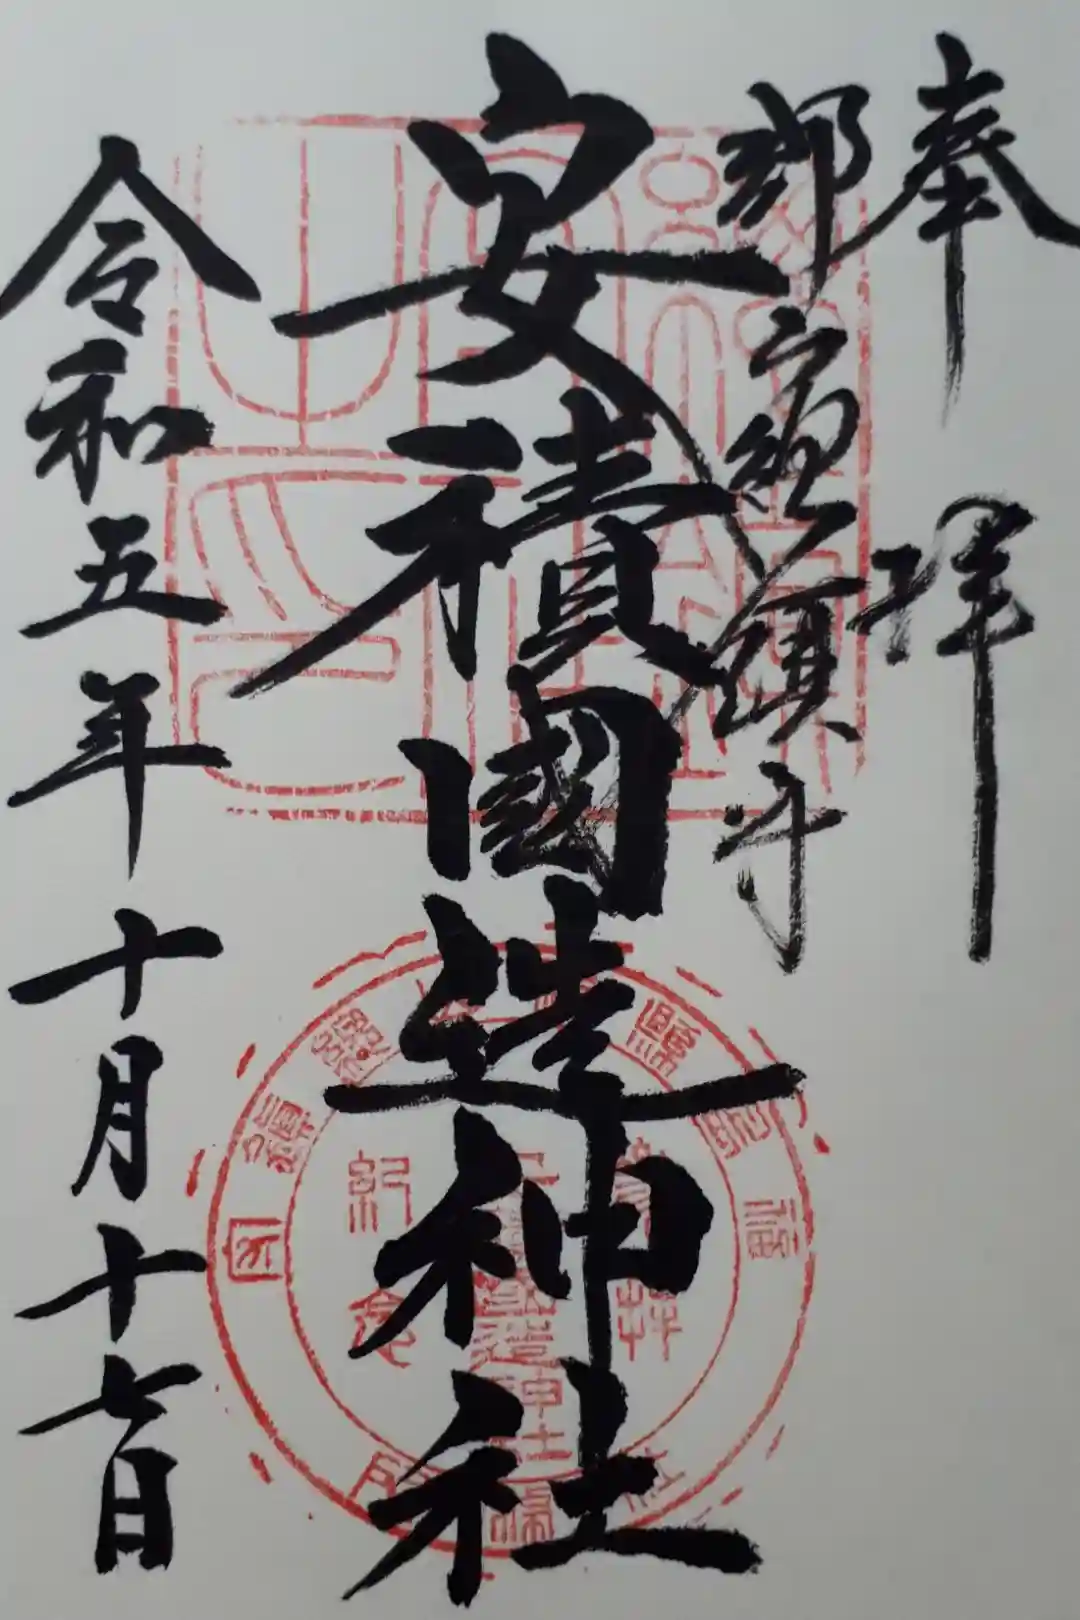 奉拝
郡山總鎮守
安積國造神社
令和五年十月十七日
参拝
紀念